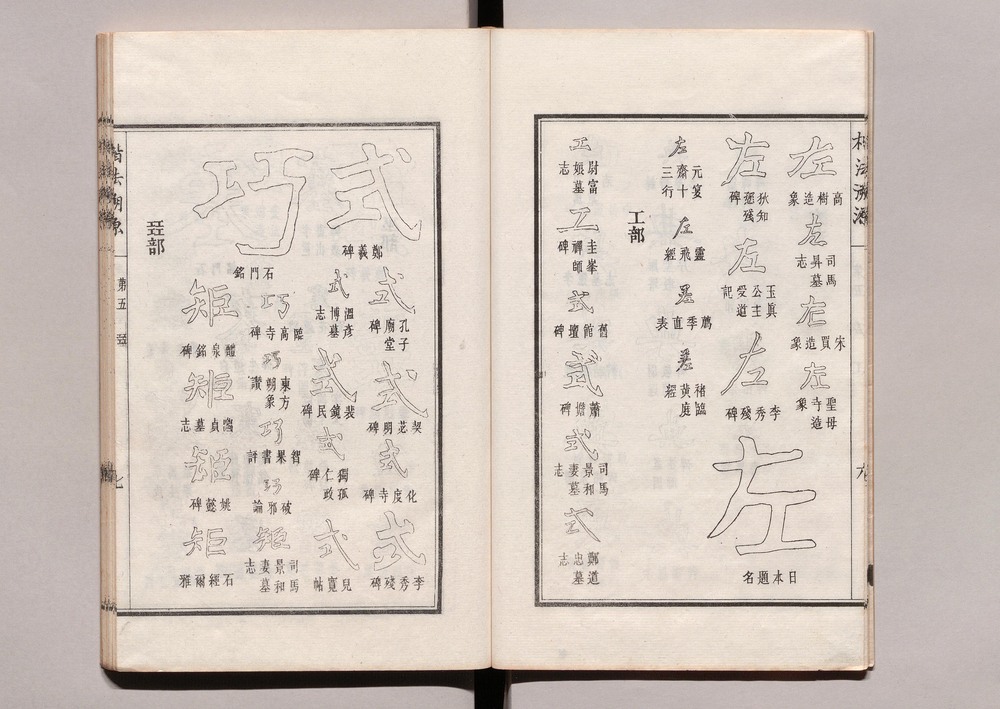 左 高樹造象
左 司馬昇墓志
左 宋買造象
左 聖母寺造象
左 狄知愻殘碑
左 玉眞公主受道記
左 李秀殘碑
左 日本題名
左 元宴齋十三行
左 靈飛經
薦季直表
褚臨黃庭經
工部
工 尉富娘墓志
工 圭峯禪師碑
式 舊館壇碑
式 蕭憺碑
式 司馬景和妻墓志
式 鄭道忠墓志
式 鄭羲碑
式 孔子廟堂碑
式 契苾明碑
式 化度寺碑
式 李秀殘碑
式 溫彥博墓志
式 裴鏡民碑
式 獨孤仁政碑
式 兒寬帖
巧 石門銘
巧 高寺碑
巧 東方朔象讚
巧 智果書評
巧 破邪論
矩 司馬景和妻墓志
矩 醴泉銘碑
矩 貞墓志
矩 姚懿碑
矩 石經爾雅
㠭部
楷法溯原 第五 㠭 七